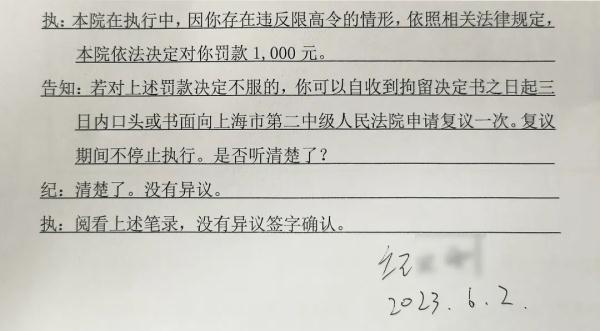 执：本院在执行中，因你存在违反限高令的情形，依照相关法律规定，
本院依法决定对你罚款 1,000 元。
告知：若对上述罚款决定不服的，你可以自收到拘留决定书之日起三
日内口头或书面向上海市第二中级人民法院申请复议一次。复议
期间不停止执行。是否听清楚了？
纪：清楚了。没有异议。
执：阅看上述笔录，没有异议签字确认。
纪
2023.6.2.